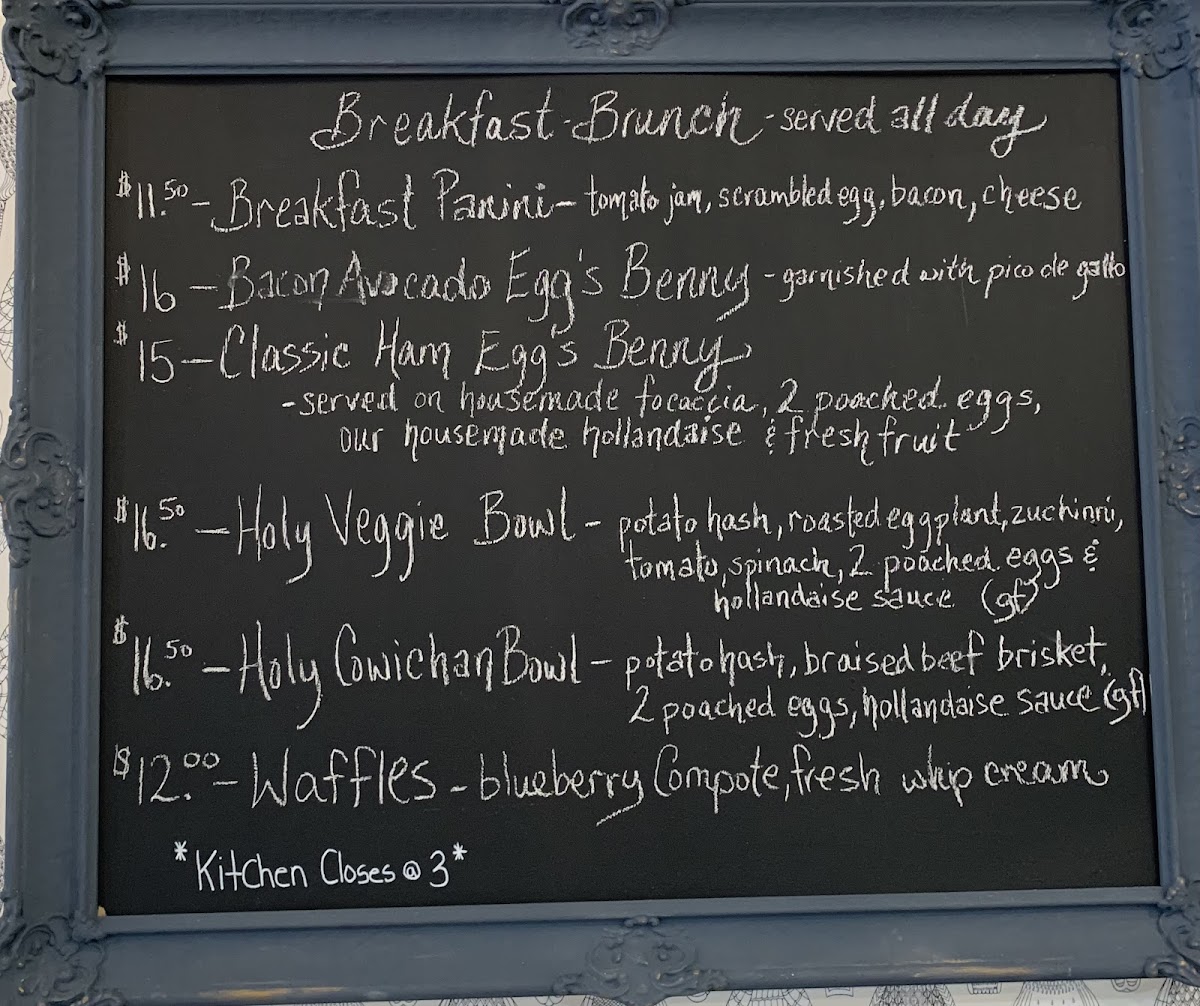 Breakfast - Brunch - served all day
$11.50 - Breakfast Panini - tomato jam, scrambled egg, bacon, cheese
$16 - Bacon Avocado Egg's Benny - garnished with pico de gallo
$15 - Classic Ham Egg's Benny
- served on housemade focaccia, 2 poached eggs,
our housemade hollandaise & fresh fruit
$16.50 - Holy Veggie Bowl - potato hash, roasted eggplant, zuchinni,
tomato, spinach, 2 poached eggs &
hollandaise sauce (gf)
$16.50 - Holy Cowichan Bowl - potato hash, braised beef brisket,
2 poached eggs, hollandaise sauce (gf)
$12.00 - Waffles - blueberry Compote, fresh whip cream
*Kitchen Closes @ 3*